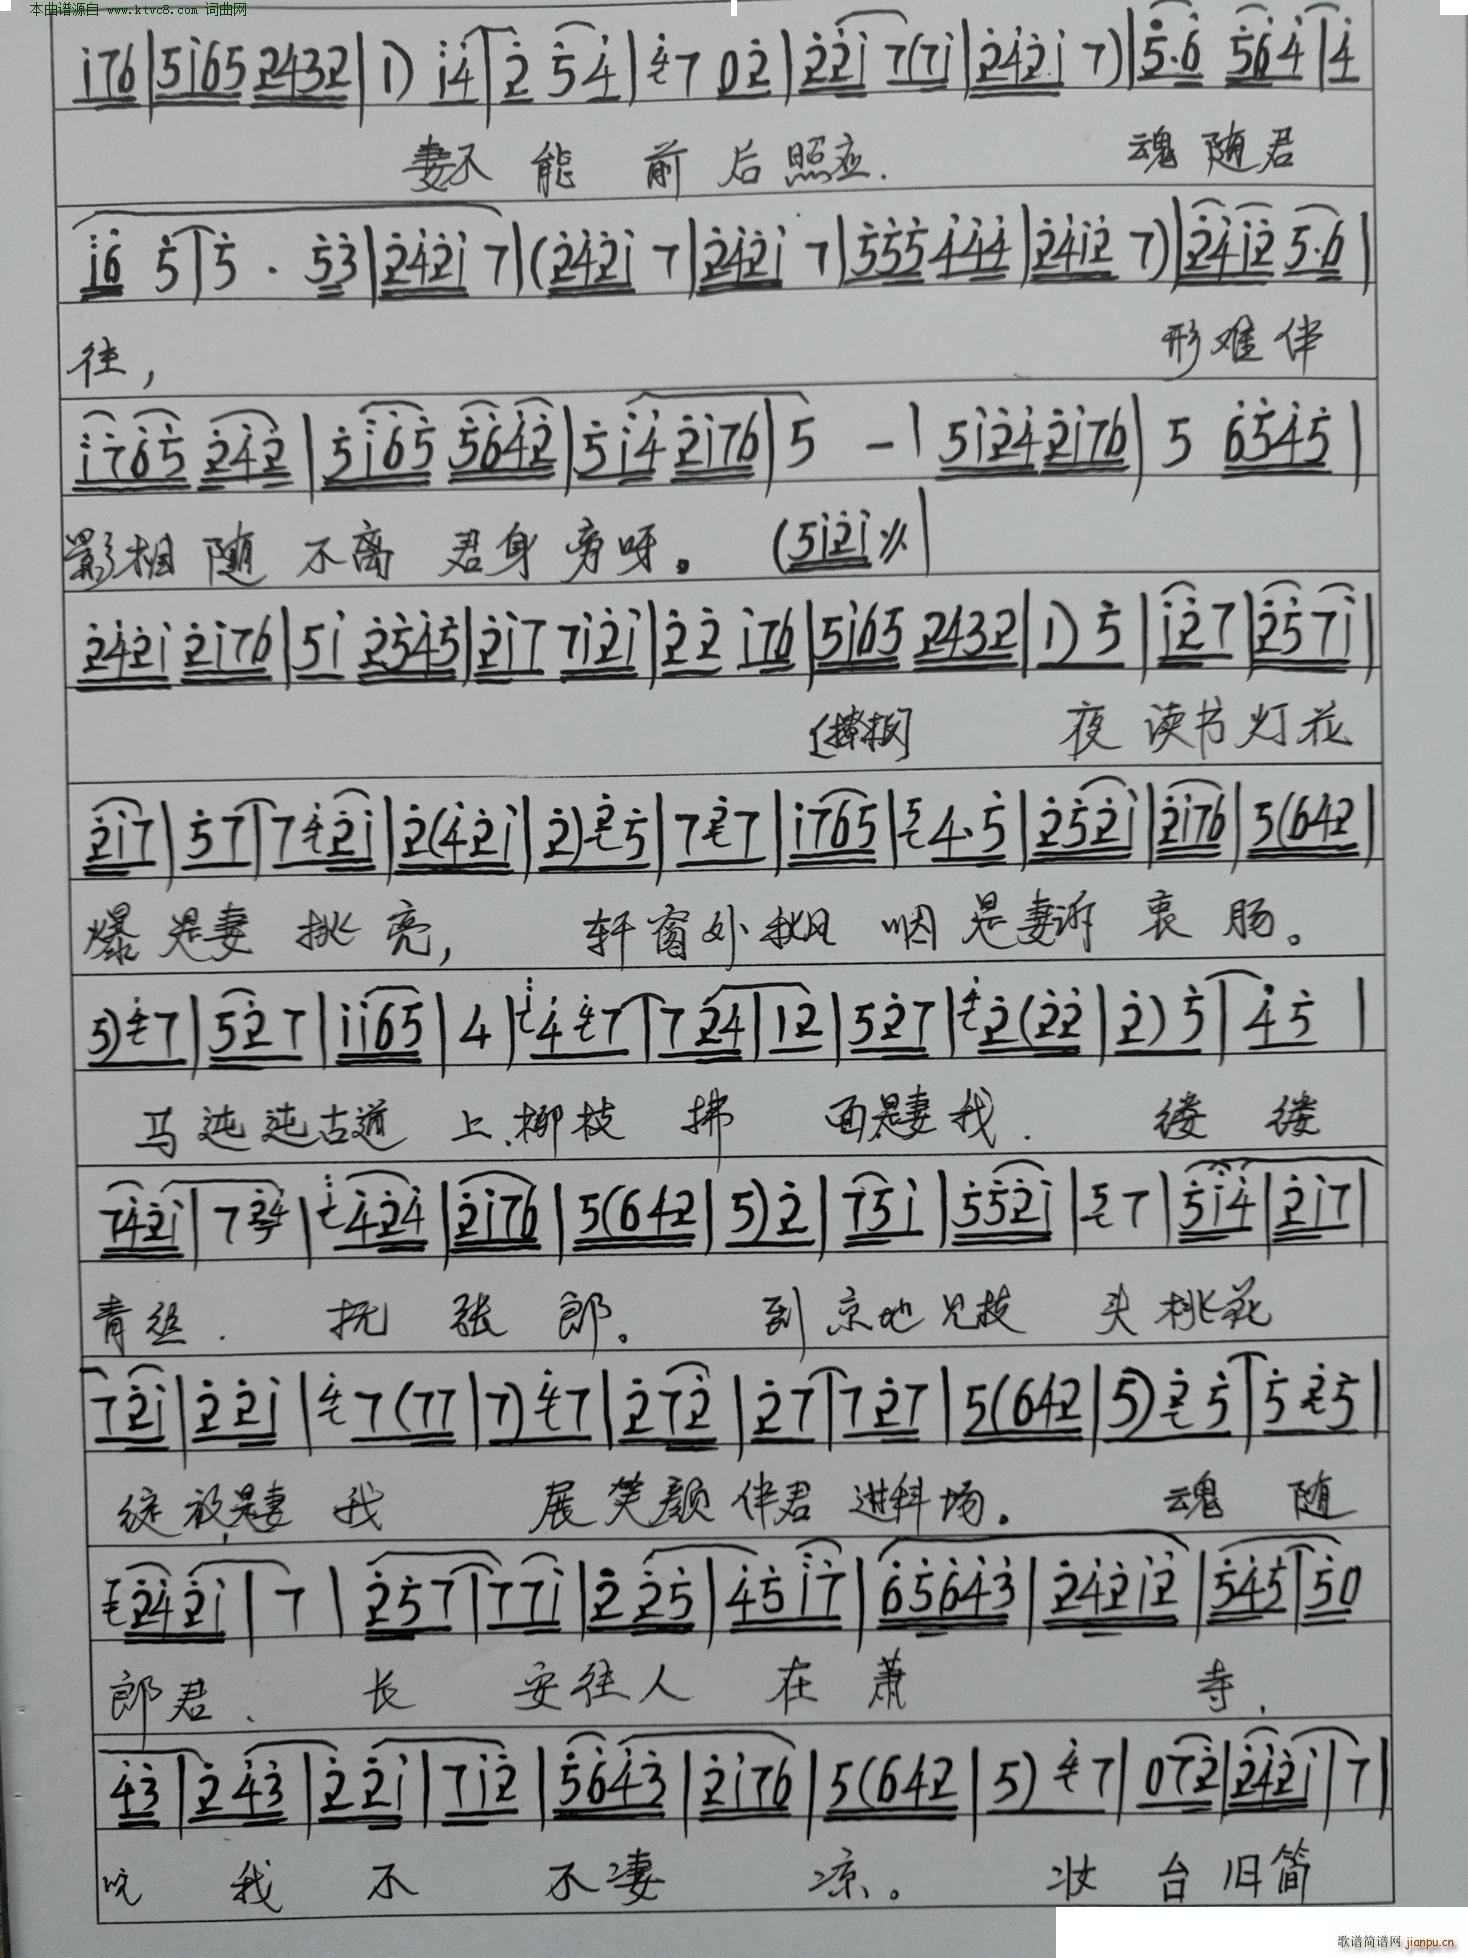 本曲谱源自 www.ktvc8.com 词曲网
i76|5i65 2432|1) i4|2 54|7 02|22i 7(7i|242i 7)|5.6 564|4
妻不 能 前 后 照应. 魂 随 君
i6 5|5 . 53|242i 7|(242i 7|242i 7|555 444|24i2 7)|24i2 5.6|
往, 形 难 伴
i765 242|5i65 5642|5i4 2i76|5 -|5i24 2i76|5 6545|
影相 随 不离 君身 旁呀。 (5i2i 〃|
242i 2i76|5i 2545|2i7 7i2i|22 i76|5i65 2432|1) 5|i27|257i|
夜 读书 灯 花
2i7|57|7 2i|2(42i|2) 5|7 7|i765|4.5|252i|2i76|5(642|
爆 是妻 挑 亮, 轩 窗外 秋风 咽 是妻诉 衷 肠。
5) 7|527|ii65|4|4 7|724|i2|527|2(22|2) 5|45|
马 沌 沌 古道 上.柳枝 拂 面是妻 我. 缕 缕
742i|7 24|424|2i76|5(642|5) 2|75i|552i|7|5i4|2i7|
青丝. 抚 张 郎。 到 京地 见枝 头 桃花
72i|22i|7(77|7) 7|272|27|727|5(642|5) 5|5 5|
绽放,是妻 我 展 笑颜 伴君 进科场。 魂 随
242i|7|257|77i|225|45i7|65643|242i2|545|50
郎君. 长 安往人 在 萧 寺.
43|243|22i|7i2|5643|2i76|5(642|5) 7|072|242i|7|
我 不 不凄 凉。 妆 台 旧简
歌谱简谱网 jianpu.cn